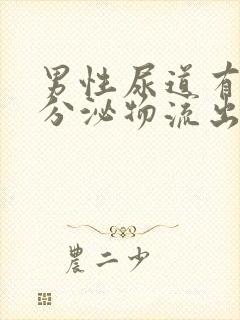 男性尿道有
分泌物流出
農二少